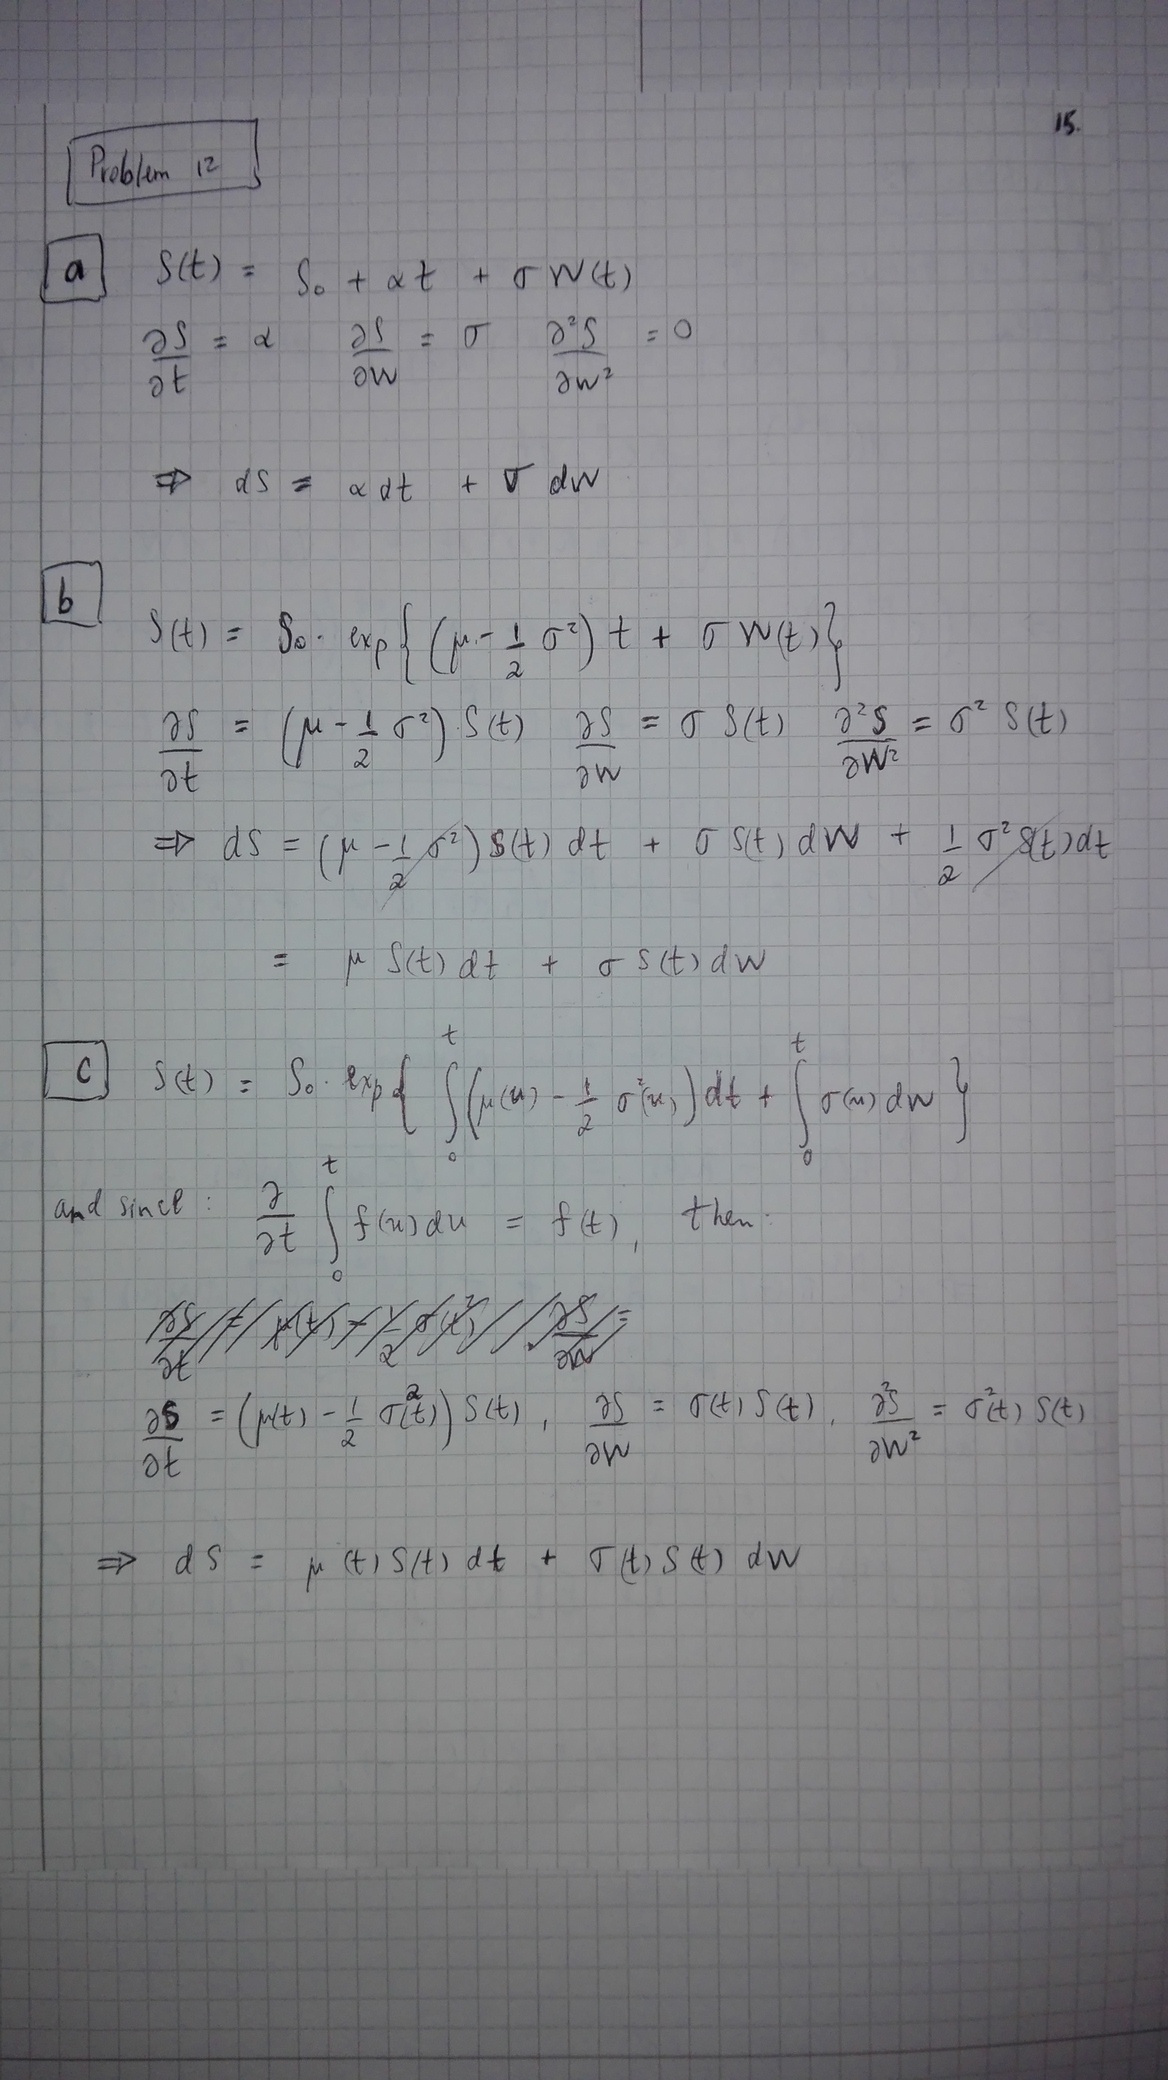 15.
Problem 12
a S(t) = S₀ + αt + σW(t)
∂S/∂t = α ∂S/∂W = σ ∂²S/∂W² = 0
⇒ dS = αdt + σ dW
b
S(t) = S₀ · exp{(μ - 1/2 σ²) t + σ W(t)}
∂S/∂t = (μ - 1/2 σ²) · S(t) ∂S/∂W = σ S(t) ∂²S/∂W² = σ² S(t)
⇒ dS = (μ - 1/2 σ²) S(t) dt + σ S(t) dW + 1/2 σ² S(t) dt
= μ S(t) dt + σ S(t) dW
c S(t) = S₀ · exp{ ∫₀ᵗ (μ(u) - 1/2 σ²(u)) dt + ∫₀ᵗ σ(u) dW }
and since: ∂/∂t ∫₀ᵗ f(u) du = f(t), then:
∂S/∂t = μ(t) - 1/2 σ(t)² ∂S/∂W =
∂S/∂t = (μ(t) - 1/2 σ²(t)) S(t), ∂S/∂W = σ(t) S(t), ∂²S/∂W² = σ²(t) S(t)
⇒ dS = μ(t) S(t) dt + σ(t) S(t) dW